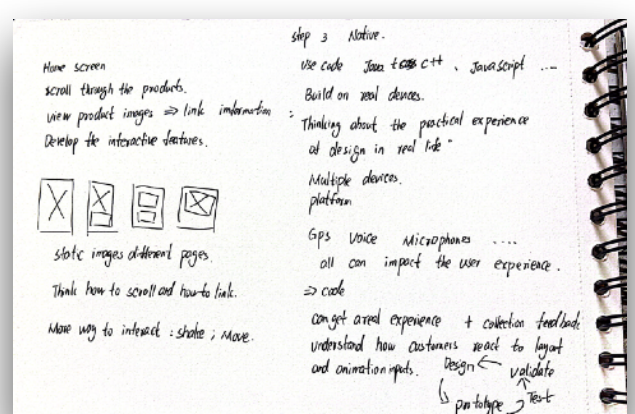 Home screen
scroll through the products.
view product images ⇒ link imformation :
Develop the interactive features.
static images different pages.
Think how to scroll and how to link.
More way to interact : shake ; Move.
step 3 Native.
Use code Java C++ 、 JavaScript ....
Build on real devices.
Thinking about the practical experience
of design in real life"
Multiple devices.
platform
GPS Voice Microphones ....
all can impact the user experience.
⇒ code
can get a real experience + collection feedback
understand how customers react to layout
and animation inputs.
Design ← validate
prototype Test